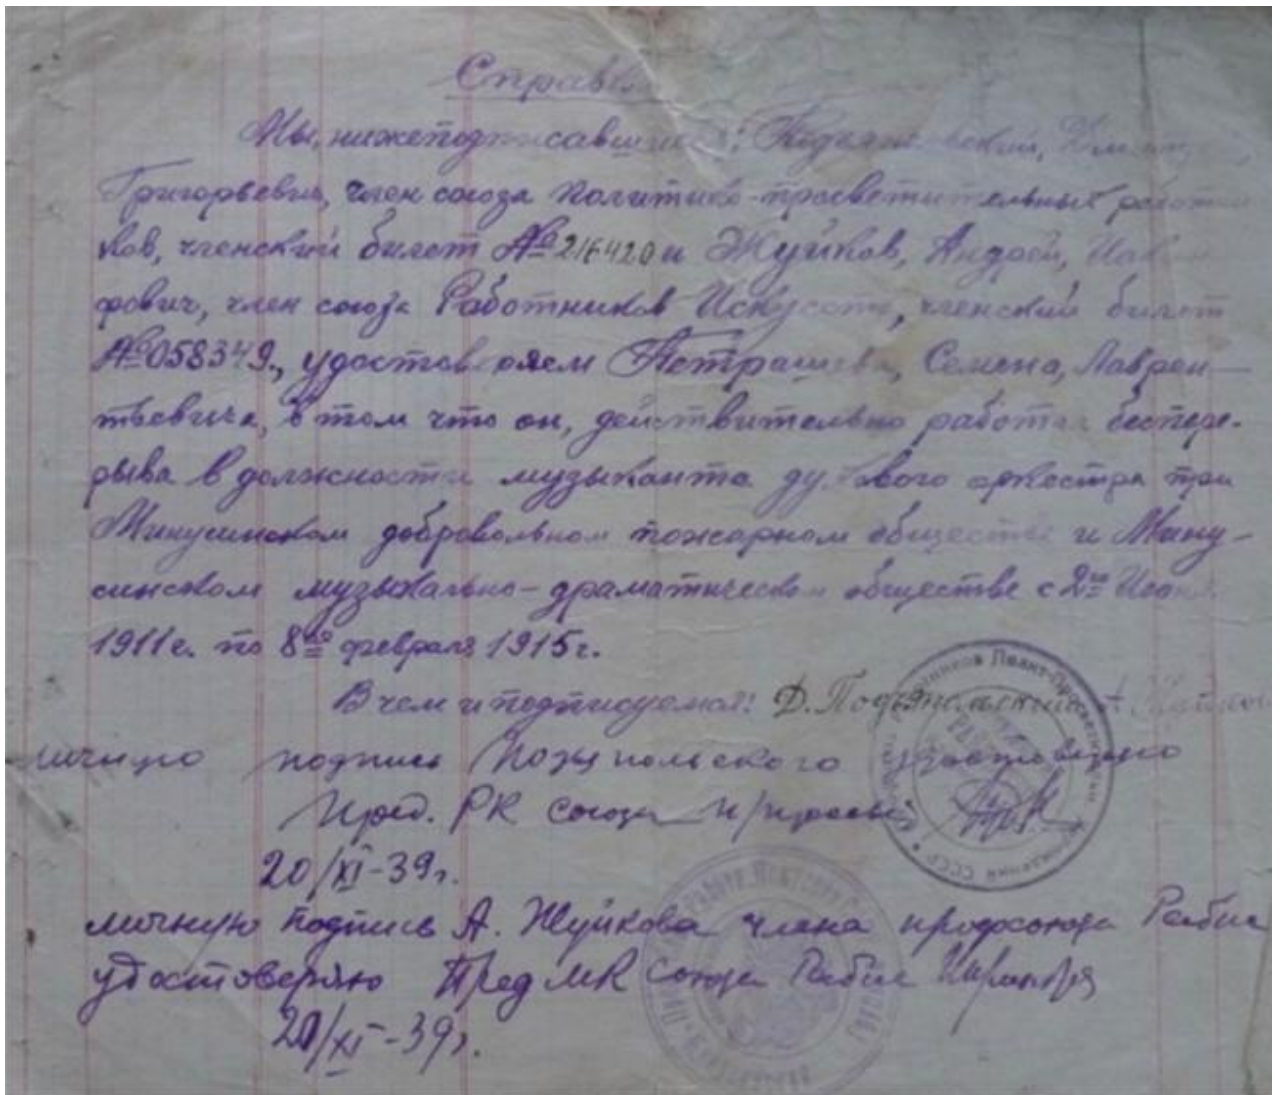 Справка
Мы, нижеподписавшиеся: Подъяпольский, Дмитрий,
Григорьевич, член союза политико-просветительных работни
ков, членский билет № 216420 и Жуйков, Андрей,
фович, член союза Работников Искусств, членский билет
№ 058349., удостоверяем Петрашева, Семена, Лаврен—
тьевича, в том что он, действительно работал беспере-
рыва в должности музыканта духового оркестра при
Минусинском добровольном пожарном обществе и Мину-
синском музыкально-драматическом обществе с 2го
1911г. по 8го февраля 1915г.
В чем и подписуемся: Д. Подъяпольский А. Жуйков
личную подпись Подъяпольского удостоверяю
Пред. РК союза п/просвет
20/XI-39г.
личную подпись А. Жуйкова члена профсоюза Рабис
удостоверяю Пред МК союза Рабис
20/XI-39г.